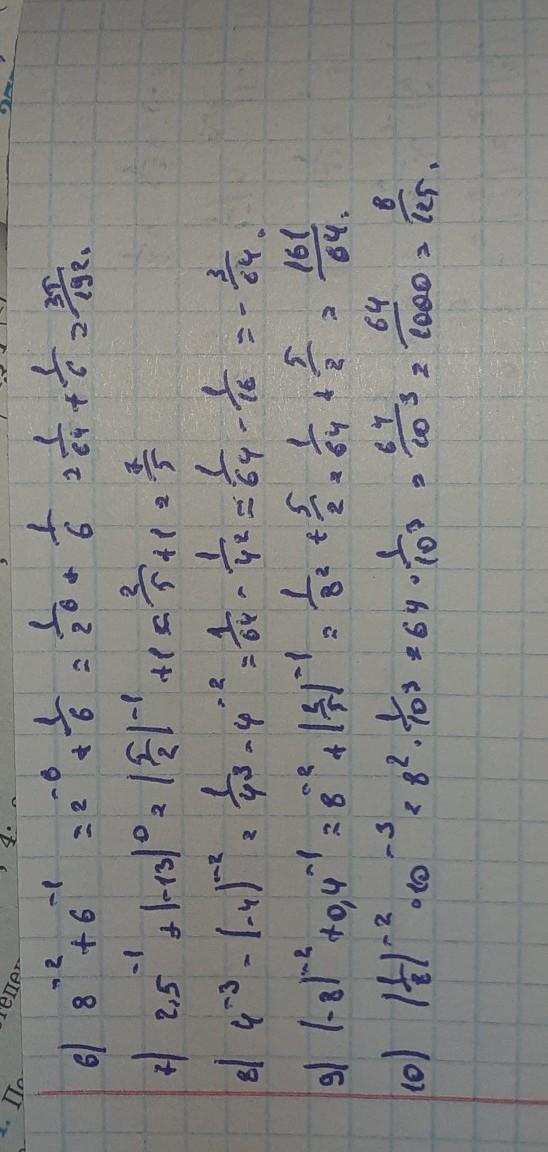 6) 8⁻² + 6⁻¹ = 2⁻⁶ + 1/6 = 1/2⁶ + 1/6 = 1/64 + 1/6 = 35/192.
7) 2,5⁻¹ + (-13)⁰ = (5/2)⁻¹ + 1 = 2/5 + 1 = 7/5
8) 4⁻³ - (-4)⁻² = 1/4³ - 4⁻² = 1/64 - 1/4² = 1/64 - 1/16 = -3/64.
9) (-8)⁻² + 0,4⁻¹ = 8⁻² + (2/5)⁻¹ = 1/8² + 5/2 = 1/64 + 5/2 = 161/64.
10) (1/8)⁻² · 10⁻³ = 8² · 1/10³ = 64 · 1/10³ = 64/10³ = 64/1000 = 8/125.